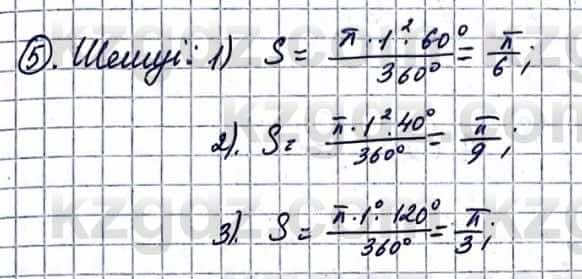 ⑤. Шешуі: 1) S = π · 1² · 60° / 360° = π/6;
2). S = π · 1² · 40° / 360° = π/9;
3). S = π · 1° · 120° / 360° = π/3;